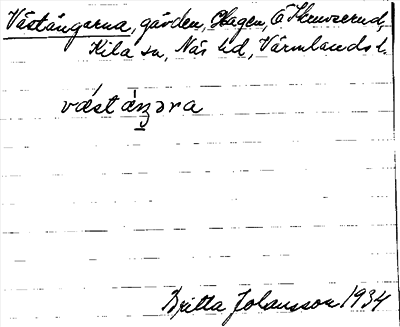 Västängarna, gården, Hagen, Ö.
Kila sn, Näs hd, Värmlands l.
væstáŋəra
Britta Johansson 1934